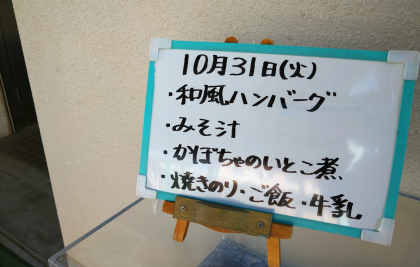 10月31日(火)
・和風ハンバーグ
・みそ汁
・かぼちゃのいとこ煮
・焼きのり・ご飯・牛乳